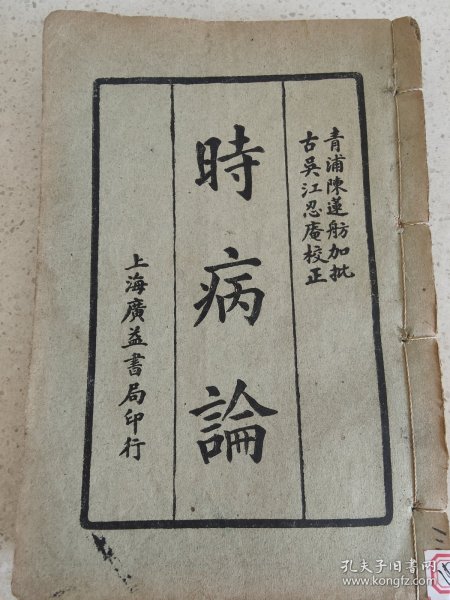 青浦陳蓮舫加批
古吳江忍庵校正
時病論
上海廣益書局印行
孔夫子旧书网
www.kongfz.com